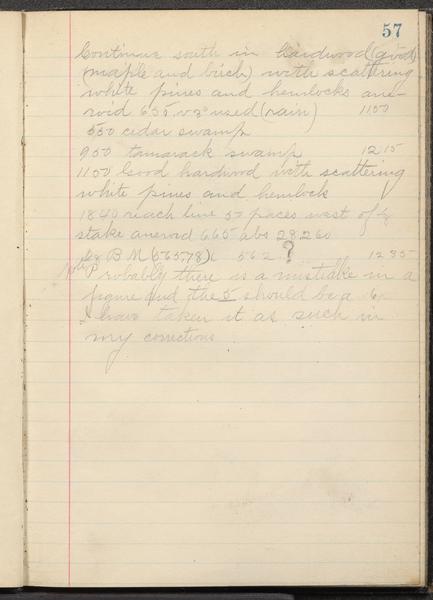 57
Continue south in hardwood (good)
(maple and birch) with scattering
white pines and hemlocks ane-
roid 635 used (rain) 1150
550 cedar swamp
950 tamarack swamp 1215
1100 Good hardwood with scattering
white pines and hemlock
1840 reach line 50 paces west of 1/4
stake aneroid 665 abs 28260
B M (56578) 562 ? 1235
Note Probably there is a mistake in a
figure and the 5 should be a 6,
I have taken it as such in
my corrections